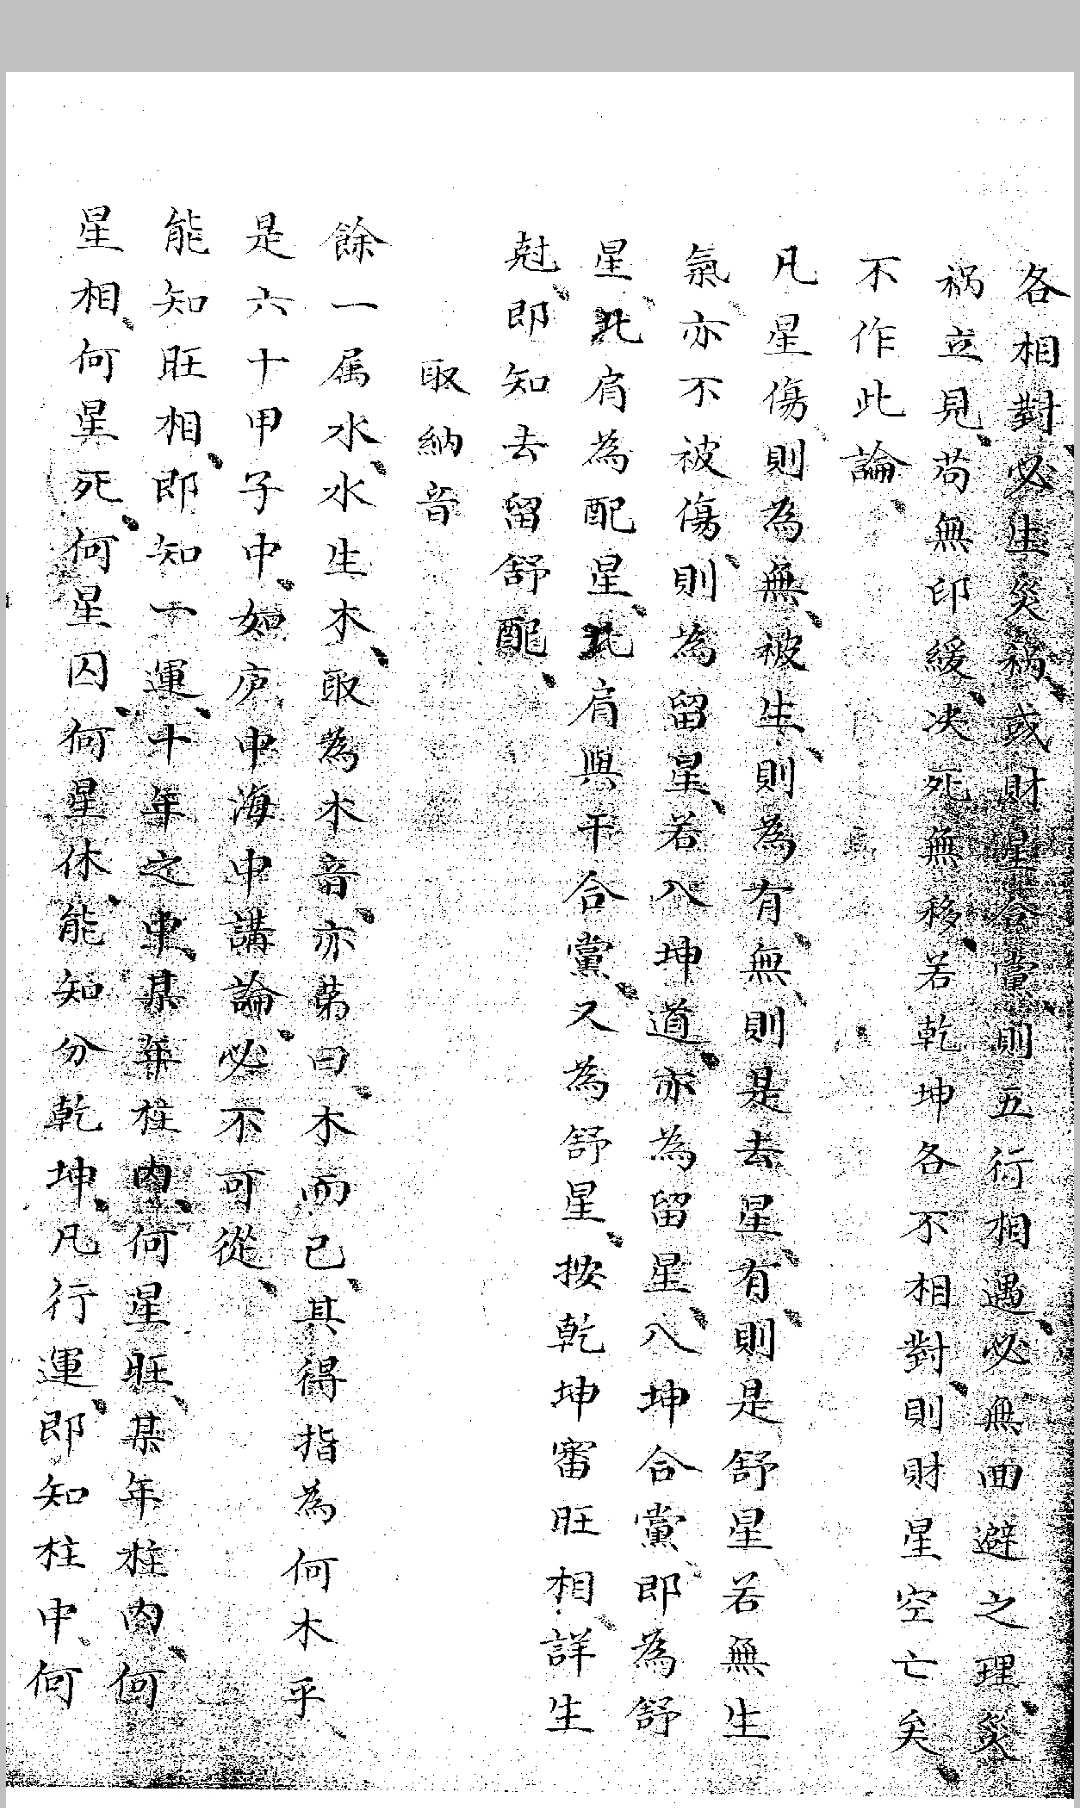 各相對必生災祸或財星合黨則五行相遇必無回避之理災
祸立見苟無印緩决死無移若乾坤各不相對則財星空亡矣
不作此論
凡星傷則為無被生則為有無則是去星有則是舒星若無生
氣亦不被傷則為留星若八坤道亦為留星八坤合黨即為舒
星比肩為配星比肩與干合黨又為舒星按乾坤審旺相詳生
尅即知去留舒配
取納音
餘一属水水生木取為木音亦第曰木而已其得指為何木乎
是六十甲子中如庐中海中講論必不可從
能知旺相即知一運十年之東某年柱内何星旺某年柱内何
星相何星死何星囚何星休能知分乾坤凡行運即知柱中何